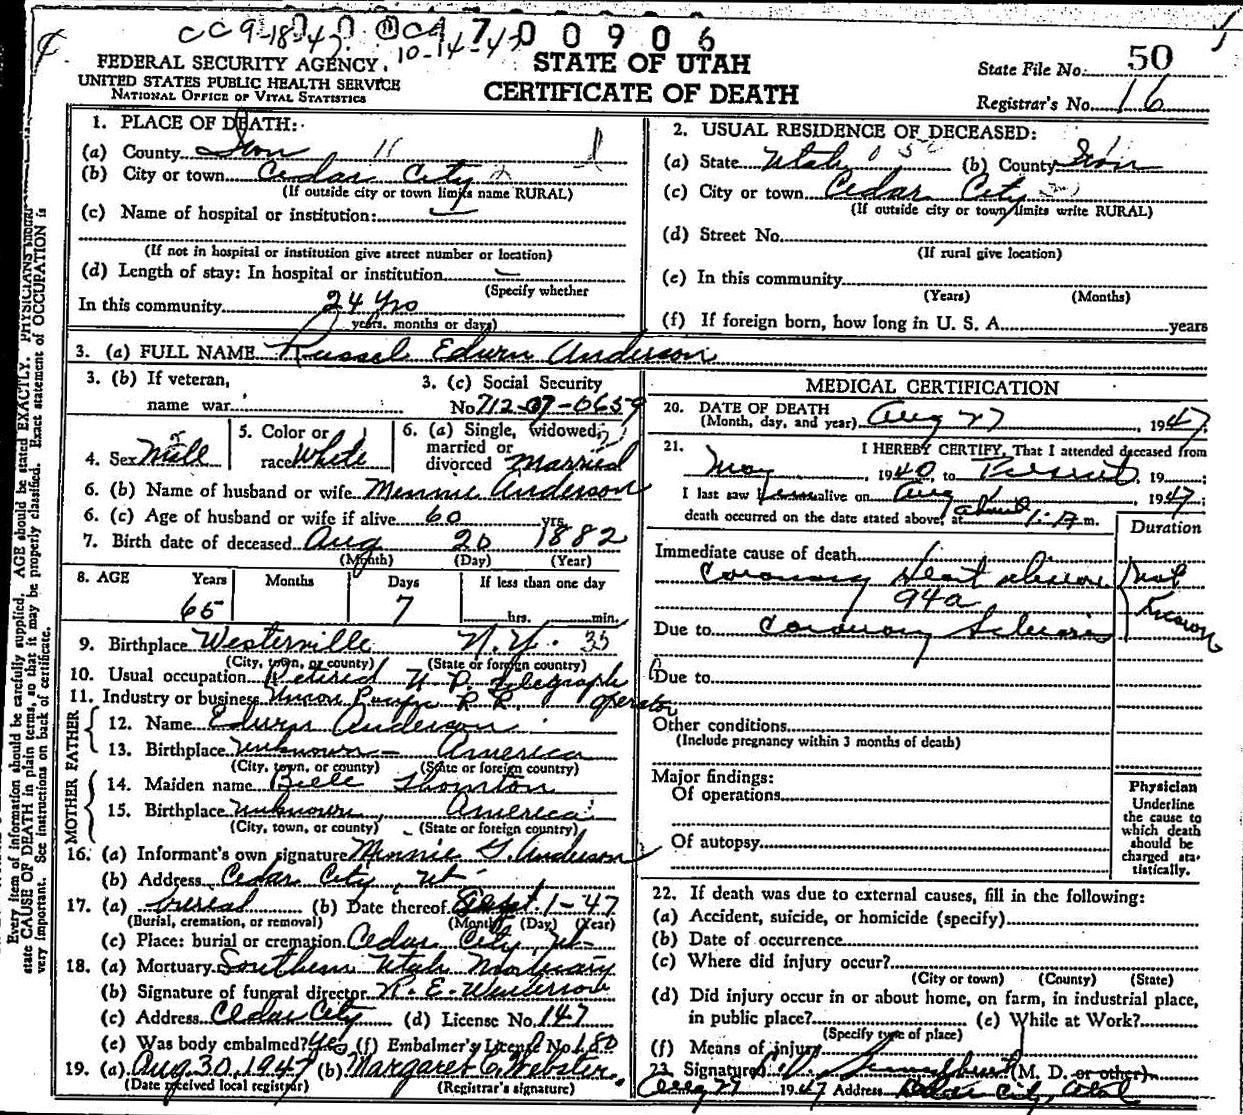 CC 9-18-47
10-14-47
700906
FEDERAL SECURITY AGENCY
UNITED STATES PUBLIC HEALTH SERVICE
NATIONAL OFFICE OF VITAL STATISTICS
STATE OF UTAH
CERTIFICATE OF DEATH
State File No. 50
Registrar's No. 16
1. PLACE OF DEATH:
(a) County Iron
(b) City or town Cedar City
(If outside city or town limits name RURAL)
(c) Name of hospital or institution:
(If not in hospital or institution give street number or location)
(d) Length of stay: In hospital or institution
(Specify whether
In this community 24 yrs
years, months or days)
2. USUAL RESIDENCE OF DECEASED:
(a) State Utah (b) County Iron
(c) City or town Cedar City
(If outside city or town limits write RURAL)
(d) Street No.
(If rural give location)
(e) In this community
(Years) (Months)
(f) If foreign born, how long in U. S. A. years
3. (a) FULL NAME Russel Edwin Anderson
3. (b) If veteran,
name war
3. (c) Social Security
No 712-07-0659
4. Sex Male
5. Color or
race White
6. (a) Single, widowed,
married or
divorced married
6. (b) Name of husband or wife Minnie Anderson
6. (c) Age of husband or wife if alive 60 yrs.
7. Birth date of deceased Aug 20 1882
(Month) (Day) (Year)
8. AGE Years Months Days If less than one day
65 7 hrs. min.
9. Birthplace Westerville N.Y. 35
(City, town, or county) (State or foreign country)
10. Usual occupation Retired U P. Telegraph
operator
11. Industry or business Union Pacific R. R.
FATHER
12. Name Edwin Anderson
13. Birthplace unknown - America
(City, town, or county) (State or foreign country)
MOTHER
14. Maiden name Belle Thornton
15. Birthplace unknown, America
(City, town, or county) (State or foreign country)
16. (a) Informant's own signature Minnie G. Anderson
(b) Address Cedar City, Ut-
17. (a) burial (b) Date thereof Sept. 1-47
(Burial, cremation, or removal) (Month) (Day) (Year)
(c) Place: burial or cremation Cedar City, Ut-
18. (a) Mortuary Southern Utah Mortuary
(b) Signature of funeral director R. E.
(c) Address Cedar City (d) License No. 147
(e) Was body embalmed? Yes (f) Embalmer's License No. 180
19. (a) Aug. 30, 1947 (b) Margaret C. Webster.
(Date received local registrar) (Registrar's signature)
MEDICAL CERTIFICATION
20. DATE OF DEATH
(Month, day, and year) Aug 27, 1947
21. I HEREBY CERTIFY, That I attended deceased from
May, 1940, to Present, 19
I last saw him alive on Aug 1, 1947;
death occurred on the date stated above, at about m.
Duration
Immediate cause of death
Coronary Heart disease
94a
not
known
Due to Coronary Sclerosis
Due to
Other conditions
(Include pregnancy within 3 months of death)
Major findings:
Of operations
Of autopsy
Physician
Underline
the cause to
which death
should be
charged sta-
tistically.
22. If death was due to external causes, fill in the following:
(a) Accident, suicide, or homicide (specify)
(b) Date of occurrence
(c) Where did injury occur?
(City or town) (County) (State)
(d) Did injury occur in or about home, on farm, in industrial place,
in public place? (e) While at Work?
(Specify type of place)
(f) Means of injury
23. Signature (M. D. or other)
Aug 27 1947 Address Cedar City, Utah
Every item of information should be carefully supplied. AGE should be stated EXACTLY. PHYSICIANS should
state CAUSE OF DEATH in plain terms, so that it may be properly classified. Exact statement of OCCUPATION is
very important. See instructions on back of certificate.